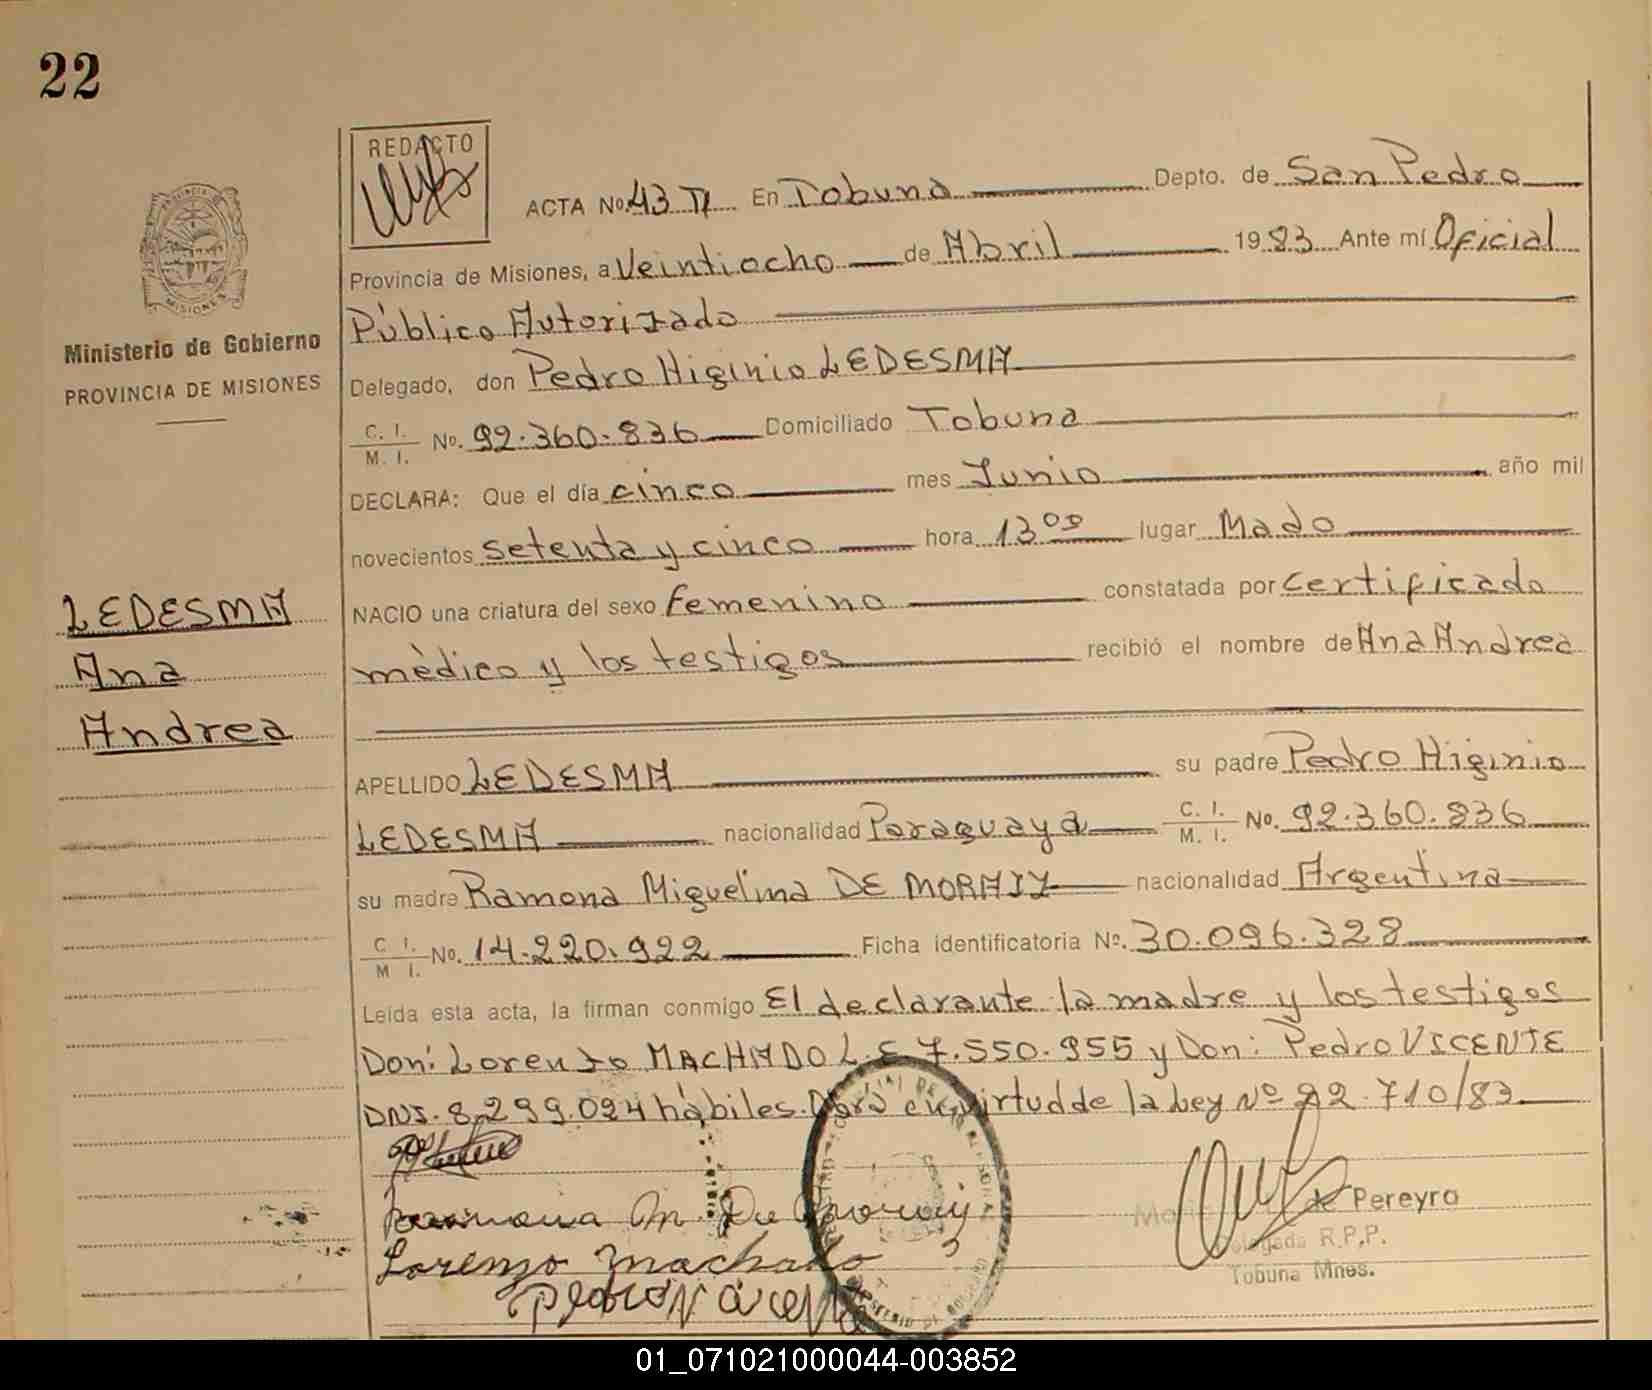 22
REDACTO
ACTA No. 43 T I En Tobuna Depto. de San Pedro
Provincia de Misiones, a Veintiocho de Abril 1983 Ante mí Oficial
Público Autorizado
Ministerio de Gobierno
PROVINCIA DE MISIONES
Delegado, don Pedro Higinio LEDESMA
C. I. / M. I. No. 92.360.836 Domiciliado Tobuna
DECLARA: Que el día cinco mes Junio año mil
novecientos setenta y cinco hora 13 00 lugar Mado
LEDESMA
Ana
Andrea
NACIO una criatura del sexo femenino constatada por certificado
mèdico y los testigos recibió el nombre de Ana Andrea
APELLIDO LEDESMA su padre Pedro Higinio
LEDESMA nacionalidad Paraguaya C. I. / M. I. No. 92.360.836
su madre Ramona Miguelina DE nacionalidad Argentina
C. I. / M. I. No. 14.220.922 Ficha identificatoria No. 30.096.328
Leída esta acta, la firman conmigo El declarante la madre y los testigos
Don: Lorenzo MACHADO L.E 7.550.955 y Don: Pedro VICENTE
DNI. 8.299.024 hàbiles. virtud de la Ley Nº 22.710/83
Lorenzo Machado
de Pereyra
Delegada R.P.P.
Tobuna Mnes.
01_071021000044-003852